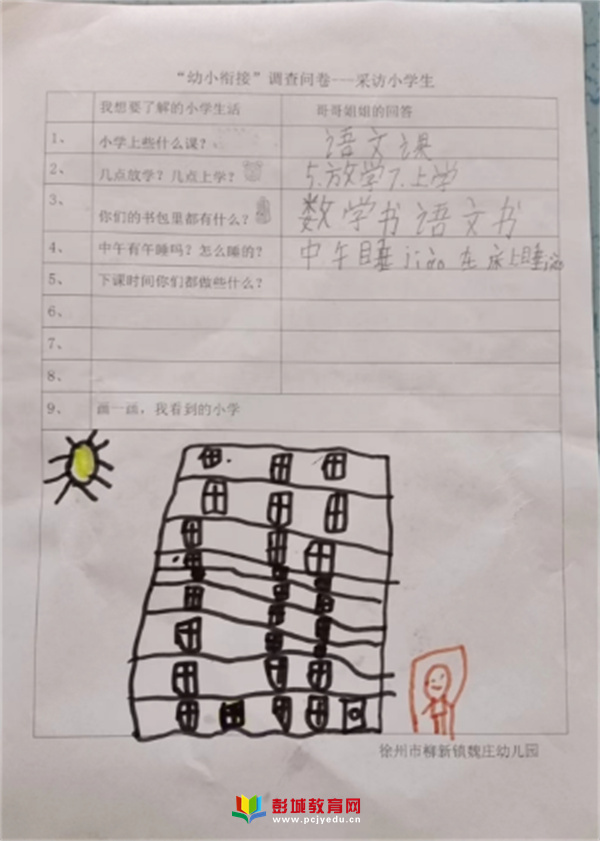 “幼小衔接”调查问卷---采访小学生
我想要了解的小学生活 哥哥姐姐的回答
1、 小学上些什么课? 语文课
2、 几点放学?几点上学? 5.放学7.上学
3、 你们的书包里都有什么? 数学书语文书
4、 中午有午睡吗?怎么睡的? 中午睡jiao在床上睡
5、 下课时间你们都做些什么?
6、
7、
8、
9、 画一画,我看到的小学
徐州市柳新镇魏庄幼儿园
彭城教育网
www.pcjyedu.cn